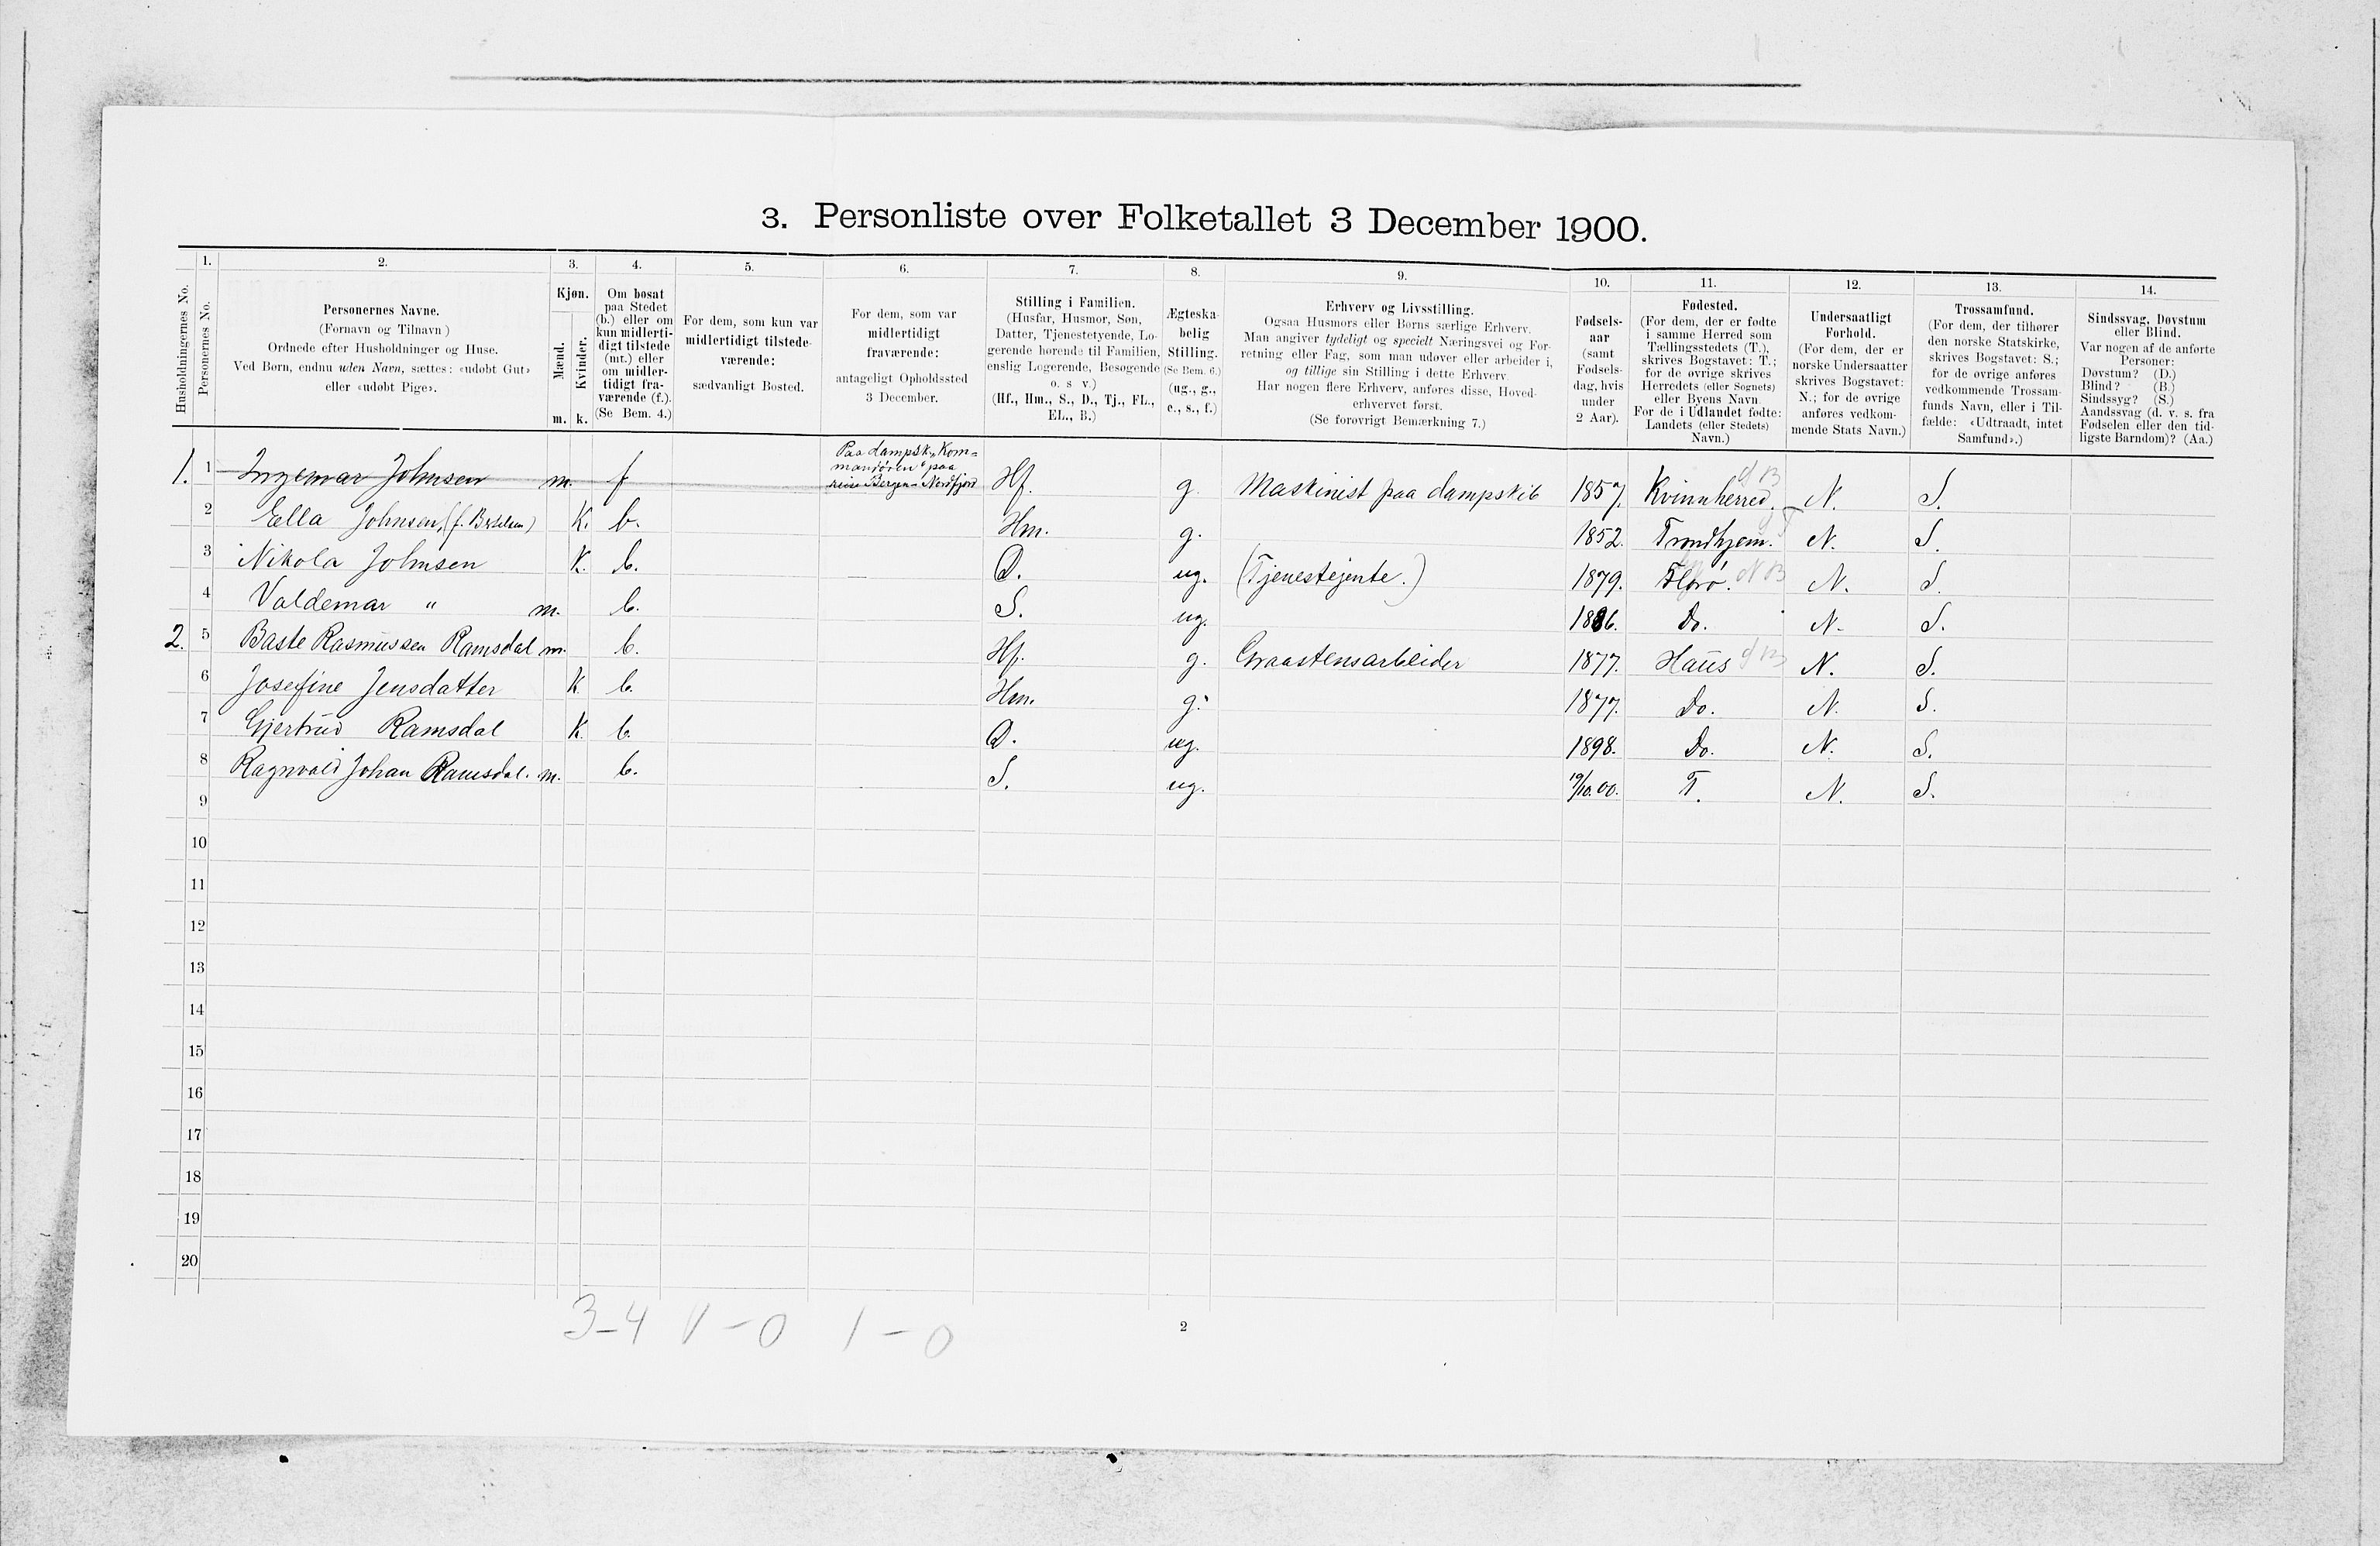 3. Personliste over Folketallet 3 December 1900.
Husholdningernes No.
1.
Personernes No.
2.
Personernes Navne.
(Fornavn og Tilnavn)
Ordnede efter Husholdninger og Huse.
Ved Børn, endnu uden Navn, sættes: «udøbt Gut»
eller «udøbt Pige».
3.
Kjøn.
Mænd.
Kvinder.
m. k.
4.
Om bosat
paa Stedet
(b.) eller om
kun midlerti-
digt tilstede
(mt.) eller
om midler-
tidigt fra-
værende (f.).
(Se Bem. 4.)
5.
For dem, som kun var
midlertidigt tilstede-
værende:
sædvanligt Bosted.
6.
For dem, som var
midlertidigt
fraværende:
antageligt Opholdssted
3 December.
7.
Stilling i Familien.
(Husfar, Husmor, Søn,
Datter, Tjenestetyende, Lo-
gerende hørende til Familien,
enslig Logerende, Besøgende
o. s v.)
(Hf., Hm., S., D., Tj., FL.,
EL., B.)
8.
Ægteska-
belig
Stilling.
(Se Bem. 6.)
(ug., g.,
e., s., f.)
9.
Erhverv og Livsstilling.
Ogsaa Husmors eller Børns særlige Erhverv.
Man angiver tydeligt og specielt Næringsvei og For-
retning eller Fag, som man udøver eller arbeider i,
og tillige sin Stilling i dette Erhverv
Har nogen flere Erhverv, anføres disse, Hoved-
erhvervet først.
(Se forøvrigt Bemærkning 7.)
10.
Fødsels-
aar
(samt
Fødsels-
dag, hvis
under
2 Aar).
11.
Fødested.
(For dem, der er fødte
i samme Herred som
Tællingsstedets (T.),
skrives Bogstavet: T.;
for de øvrige skrives
Herredets (eller Sognets)
eller Byens Navn
For de i Udlandet fødte:
Landets (eller Stedets)
Navn.)
12.
Undersaatligt
Forhold.
(For dem, der er
norske Undersaatter
skrives Bogstavet:
N.; for de øvrige
anføres vedkom-
mende Stats Navn.)
13.
Trossamfund.
(For dem, der tilhører
den norske Statskirke,
skrives Bogstavet: S.;
for de øvrige anføres
vedkommende Trossam-
funds Navn, eller i Til-
fælde: «Udtraadt, intet
Samfund».)
14.
Sindssvag, Døvstum
eller Blind.
Var nogen af de anførte
Personer:
Døvstum? (D.)
Blind? (B.)
Sindssyg? (S.)
Aandssvag (d. v. s. fra
Fødselen eller den tid-
ligste Barndom)? (Aa.)
Paa dampsk. „Kom-
mandøren“ paa
reise Bergen-Nordfjord
1. 1 Ingemar Johnsen m. f Hf. g. Maskinist paa dampskib 1857. Kvinnherred. N. S.
2 Ella Johnsen, K. b. Hm. g. 1852. Trondhjem. N. S.
3 Nikola Johnsen K. b. D. ug. (Tjenestejente.) 1879. Florø. N. S.
4 Valdemar " m. b. S. ug. 1886. Do. N. S.
2. 5 Baste Rasmussen Ramsdal m. b. Hf. g. Graastensarbeider 1877. Haus N. S.
6 Josefine Jensdatter K b. Hm. g. 1877. Do. N. S.
7 Gjertrud Ramsdal K. b. D. ug. 1898. Do. N. S.
8 Ragnvald Johan Ramsdal. m. b. S. ug. 19/10.00. T. N. S.
9
10
11
12
13
14
15
16
17
18
19
20
3-4 1-0 1-0
2